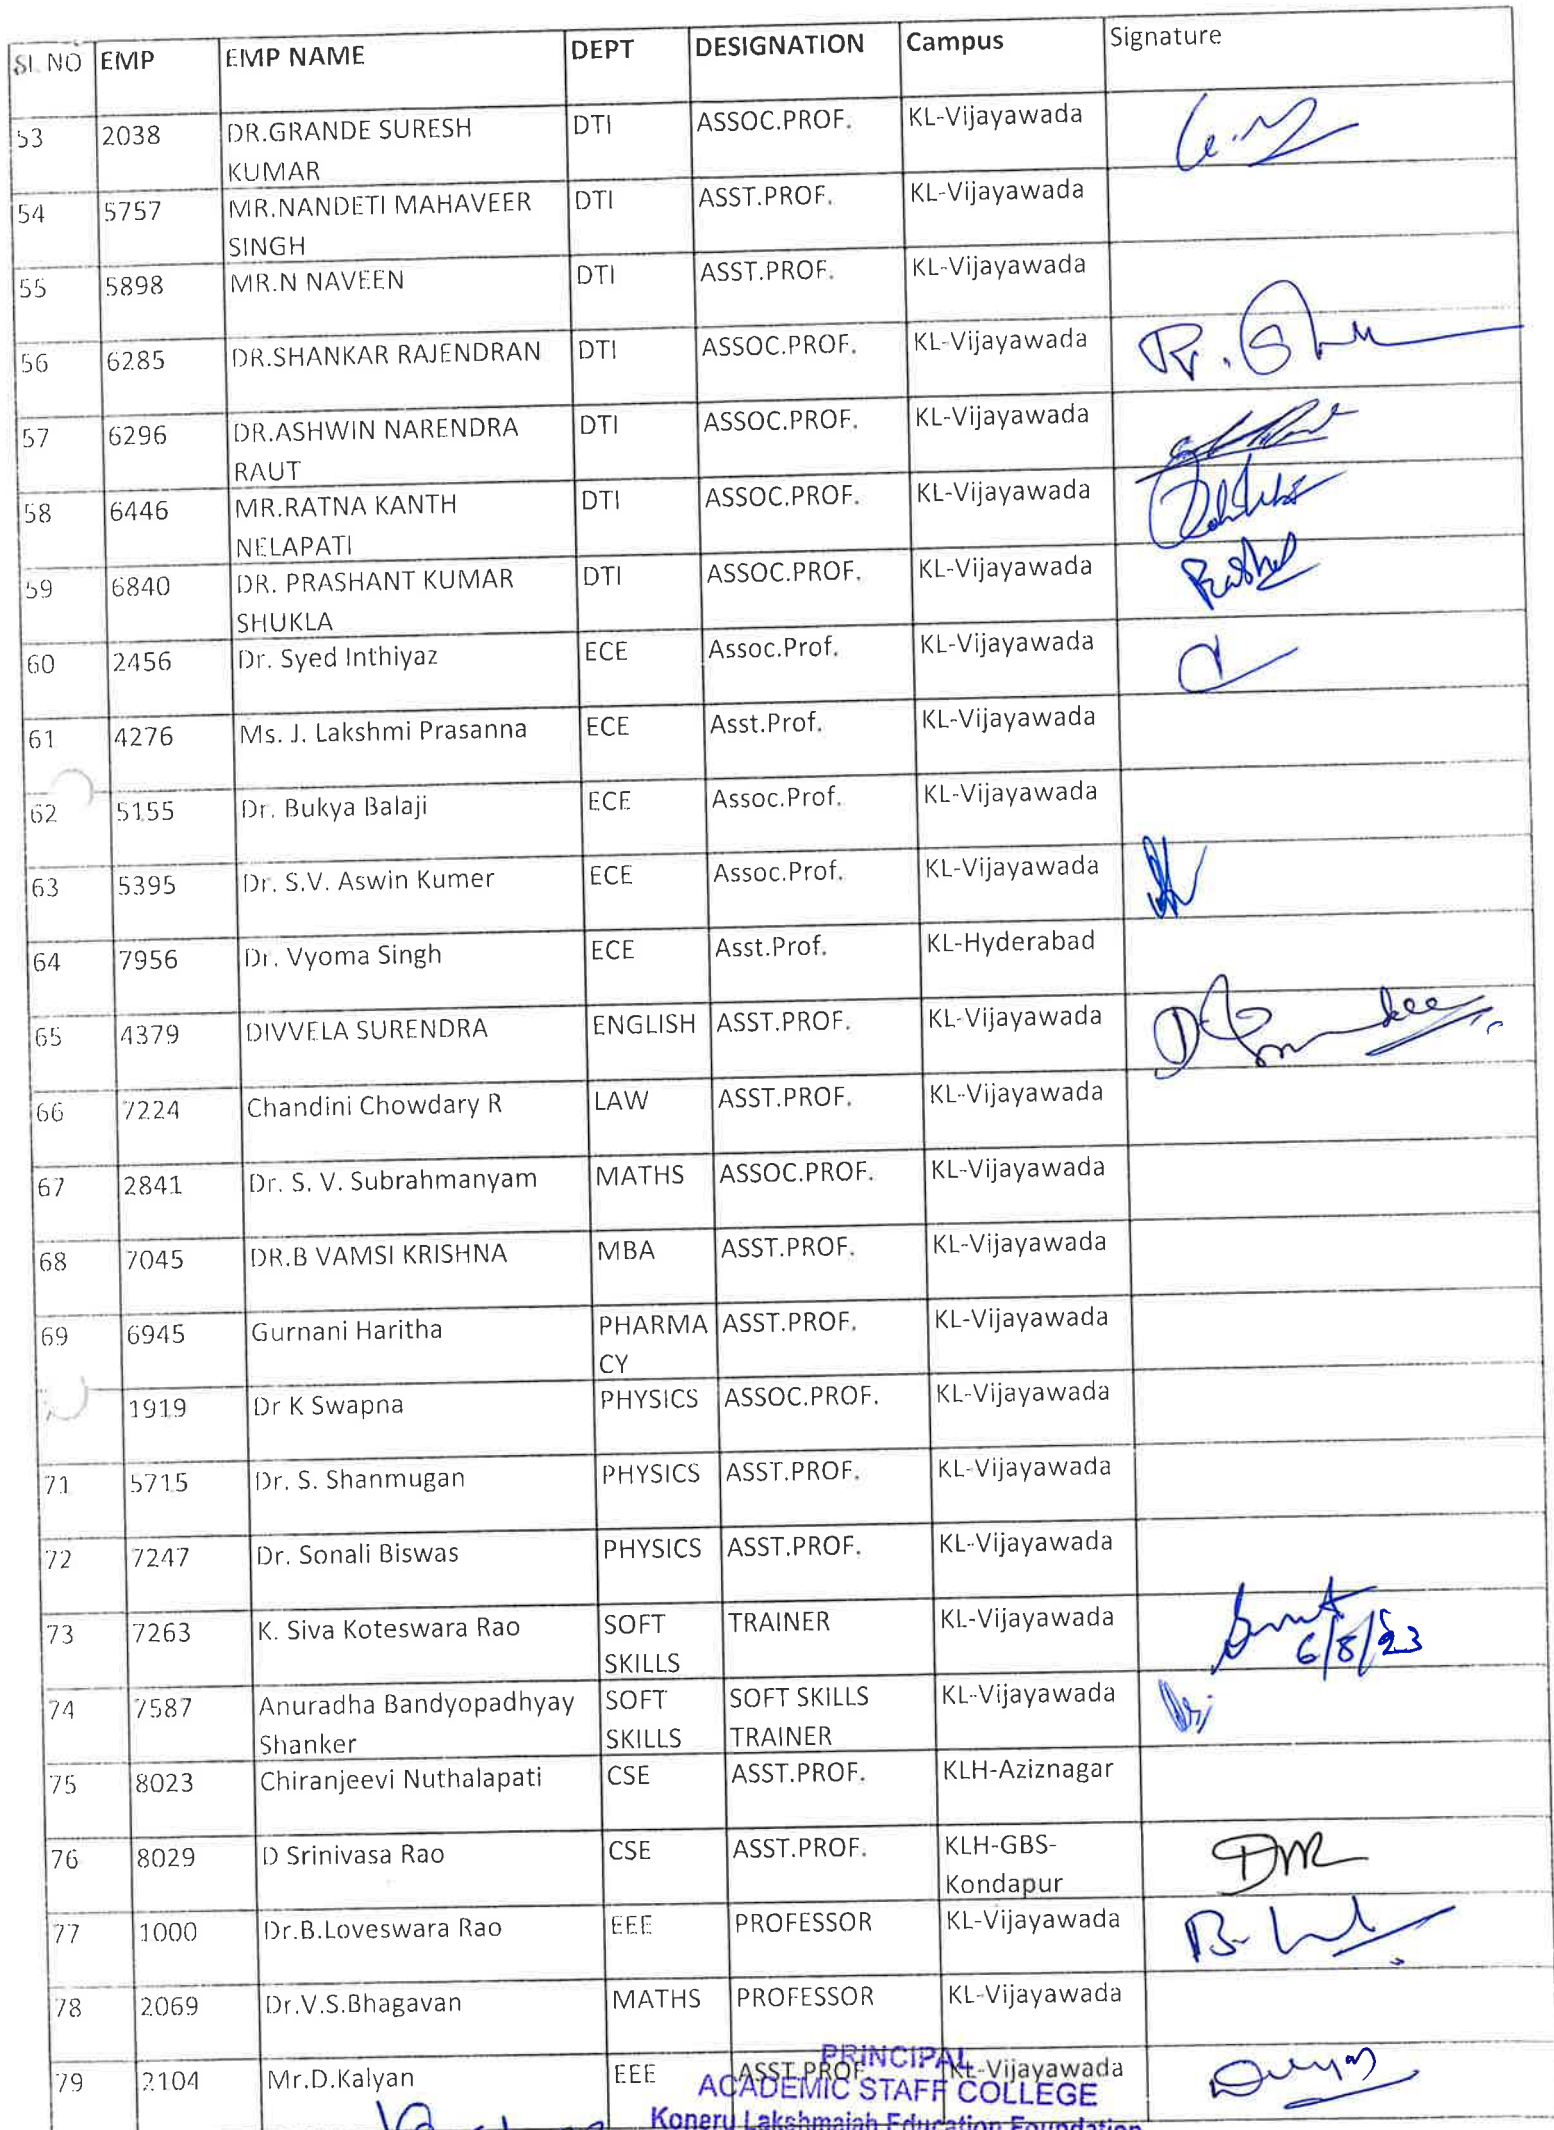 SI. NO EMP EMP NAME DEPT DESIGNATION Campus Signature
53 2038 DR.GRANDE SURESH DTI ASSOC.PROF. KL-Vijayawada
KUMAR
54 5757 MR.NANDETI MAHAVEER DTI ASST.PROF. KL-Vijayawada
SINGH
55 5898 MR.N NAVEEN DTI ASST.PROF. KL-Vijayawada
56 6285 DR.SHANKAR RAJENDRAN DTI ASSOC.PROF. KL-Vijayawada
57 6296 DR.ASHWIN NARENDRA DTI ASSOC.PROF. KL-Vijayawada
RAUT
58 6446 MR.RATNA KANTH DTI ASSOC.PROF. KL-Vijayawada
NELAPATI
59 6840 DR. PRASHANT KUMAR DTI ASSOC.PROF. KL-Vijayawada
SHUKLA
60 2456 Dr. Syed Inthiyaz ECE Assoc.Prof. KL-Vijayawada
61 4276 Ms. J. Lakshmi Prasanna ECE Asst.Prof. KL-Vijayawada
62 5155 Dr. Bukya Balaji ECE Assoc.Prof. KL-Vijayawada
63 5395 Dr. S.V. Aswin Kumer ECE Assoc.Prof. KL-Vijayawada
64 7956 Dr. Vyoma Singh ECE Asst.Prof. KL-Hyderabad
65 4379 DIVVELA SURENDRA ENGLISH ASST.PROF. KL-Vijayawada
66 7224 Chandini Chowdary R LAW ASST.PROF. KL-Vijayawada
67 2841 Dr. S. V. Subrahmanyam MATHS ASSOC.PROF. KL-Vijayawada
68 7045 DR.B VAMSI KRISHNA MBA ASST.PROF. KL-Vijayawada
69 6945 Gurnani Haritha PHARMA ASST.PROF. KL-Vijayawada
CY
1919 Dr K Swapna PHYSICS ASSOC.PROF. KL-Vijayawada
71 5715 Dr. S. Shanmugan PHYSICS ASST.PROF. KL-Vijayawada
72 7247 Dr. Sonali Biswas PHYSICS ASST.PROF. KL-Vijayawada
73 7263 K. Siva Koteswara Rao SOFT TRAINER KL-Vijayawada
SKILLS 6/8/23
74 7587 Anuradha Bandyopadhyay SOFT SOFT SKILLS KL-Vijayawada
Shanker SKILLS TRAINER
75 8023 Chiranjeevi Nuthalapati CSE ASST.PROF. KLH-Aziznagar
76 8029 D Srinivasa Rao CSE ASST.PROF. KLH-GBS-
Kondapur
77 1000 Dr.B.Loveswara Rao EEE PROFESSOR KL-Vijayawada
78 2069 Dr.V.S.Bhagavan MATHS PROFESSOR KL-Vijayawada
79 2104 Mr.D.Kalyan EEE ASST.PROF. KL-Vijayawada
PRINCIPAL
ACADEMIC STAFF COLLEGE
Koneru Lakshmaiah Education Foundation